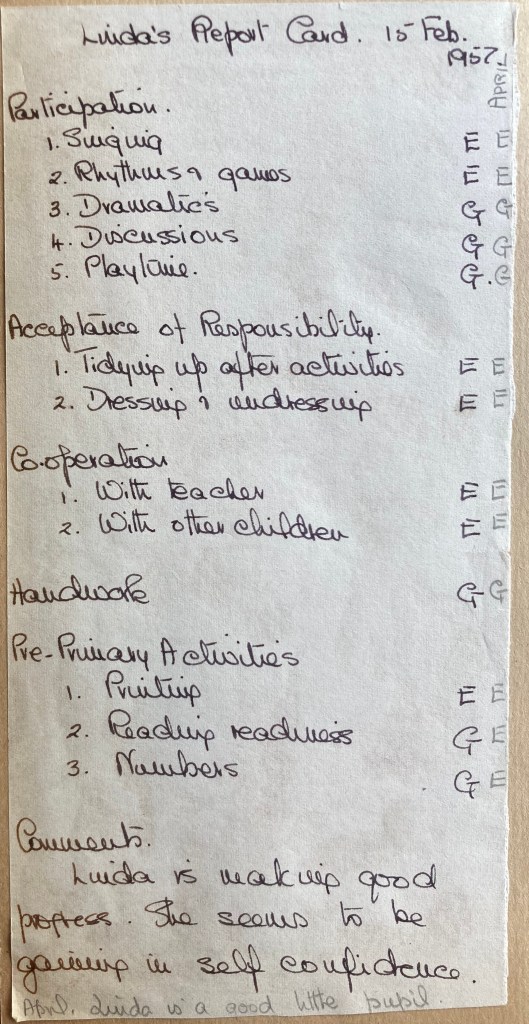 Linda's Report Card. 15 Feb.
1957
APRIL
Participation.
1. Singing E E
2. Rhythms & games E E
3. Dramatics G G
4. Discussions G G
5. Playtime. G. G
Acceptance of Responsibility.
1. Tidying up after activities E E
2. Dressing & undressing E E
Co-operation
1. With teacher E E
2. With other children E E
Handwork G G
Pre-Primary Activities
1. Printing E E
2. Reading readiness G E
3. Numbers G E
Comments.
Linda is making good
progress. She seems to be
gaining in self confidence.
April. Linda is a good little pupil.